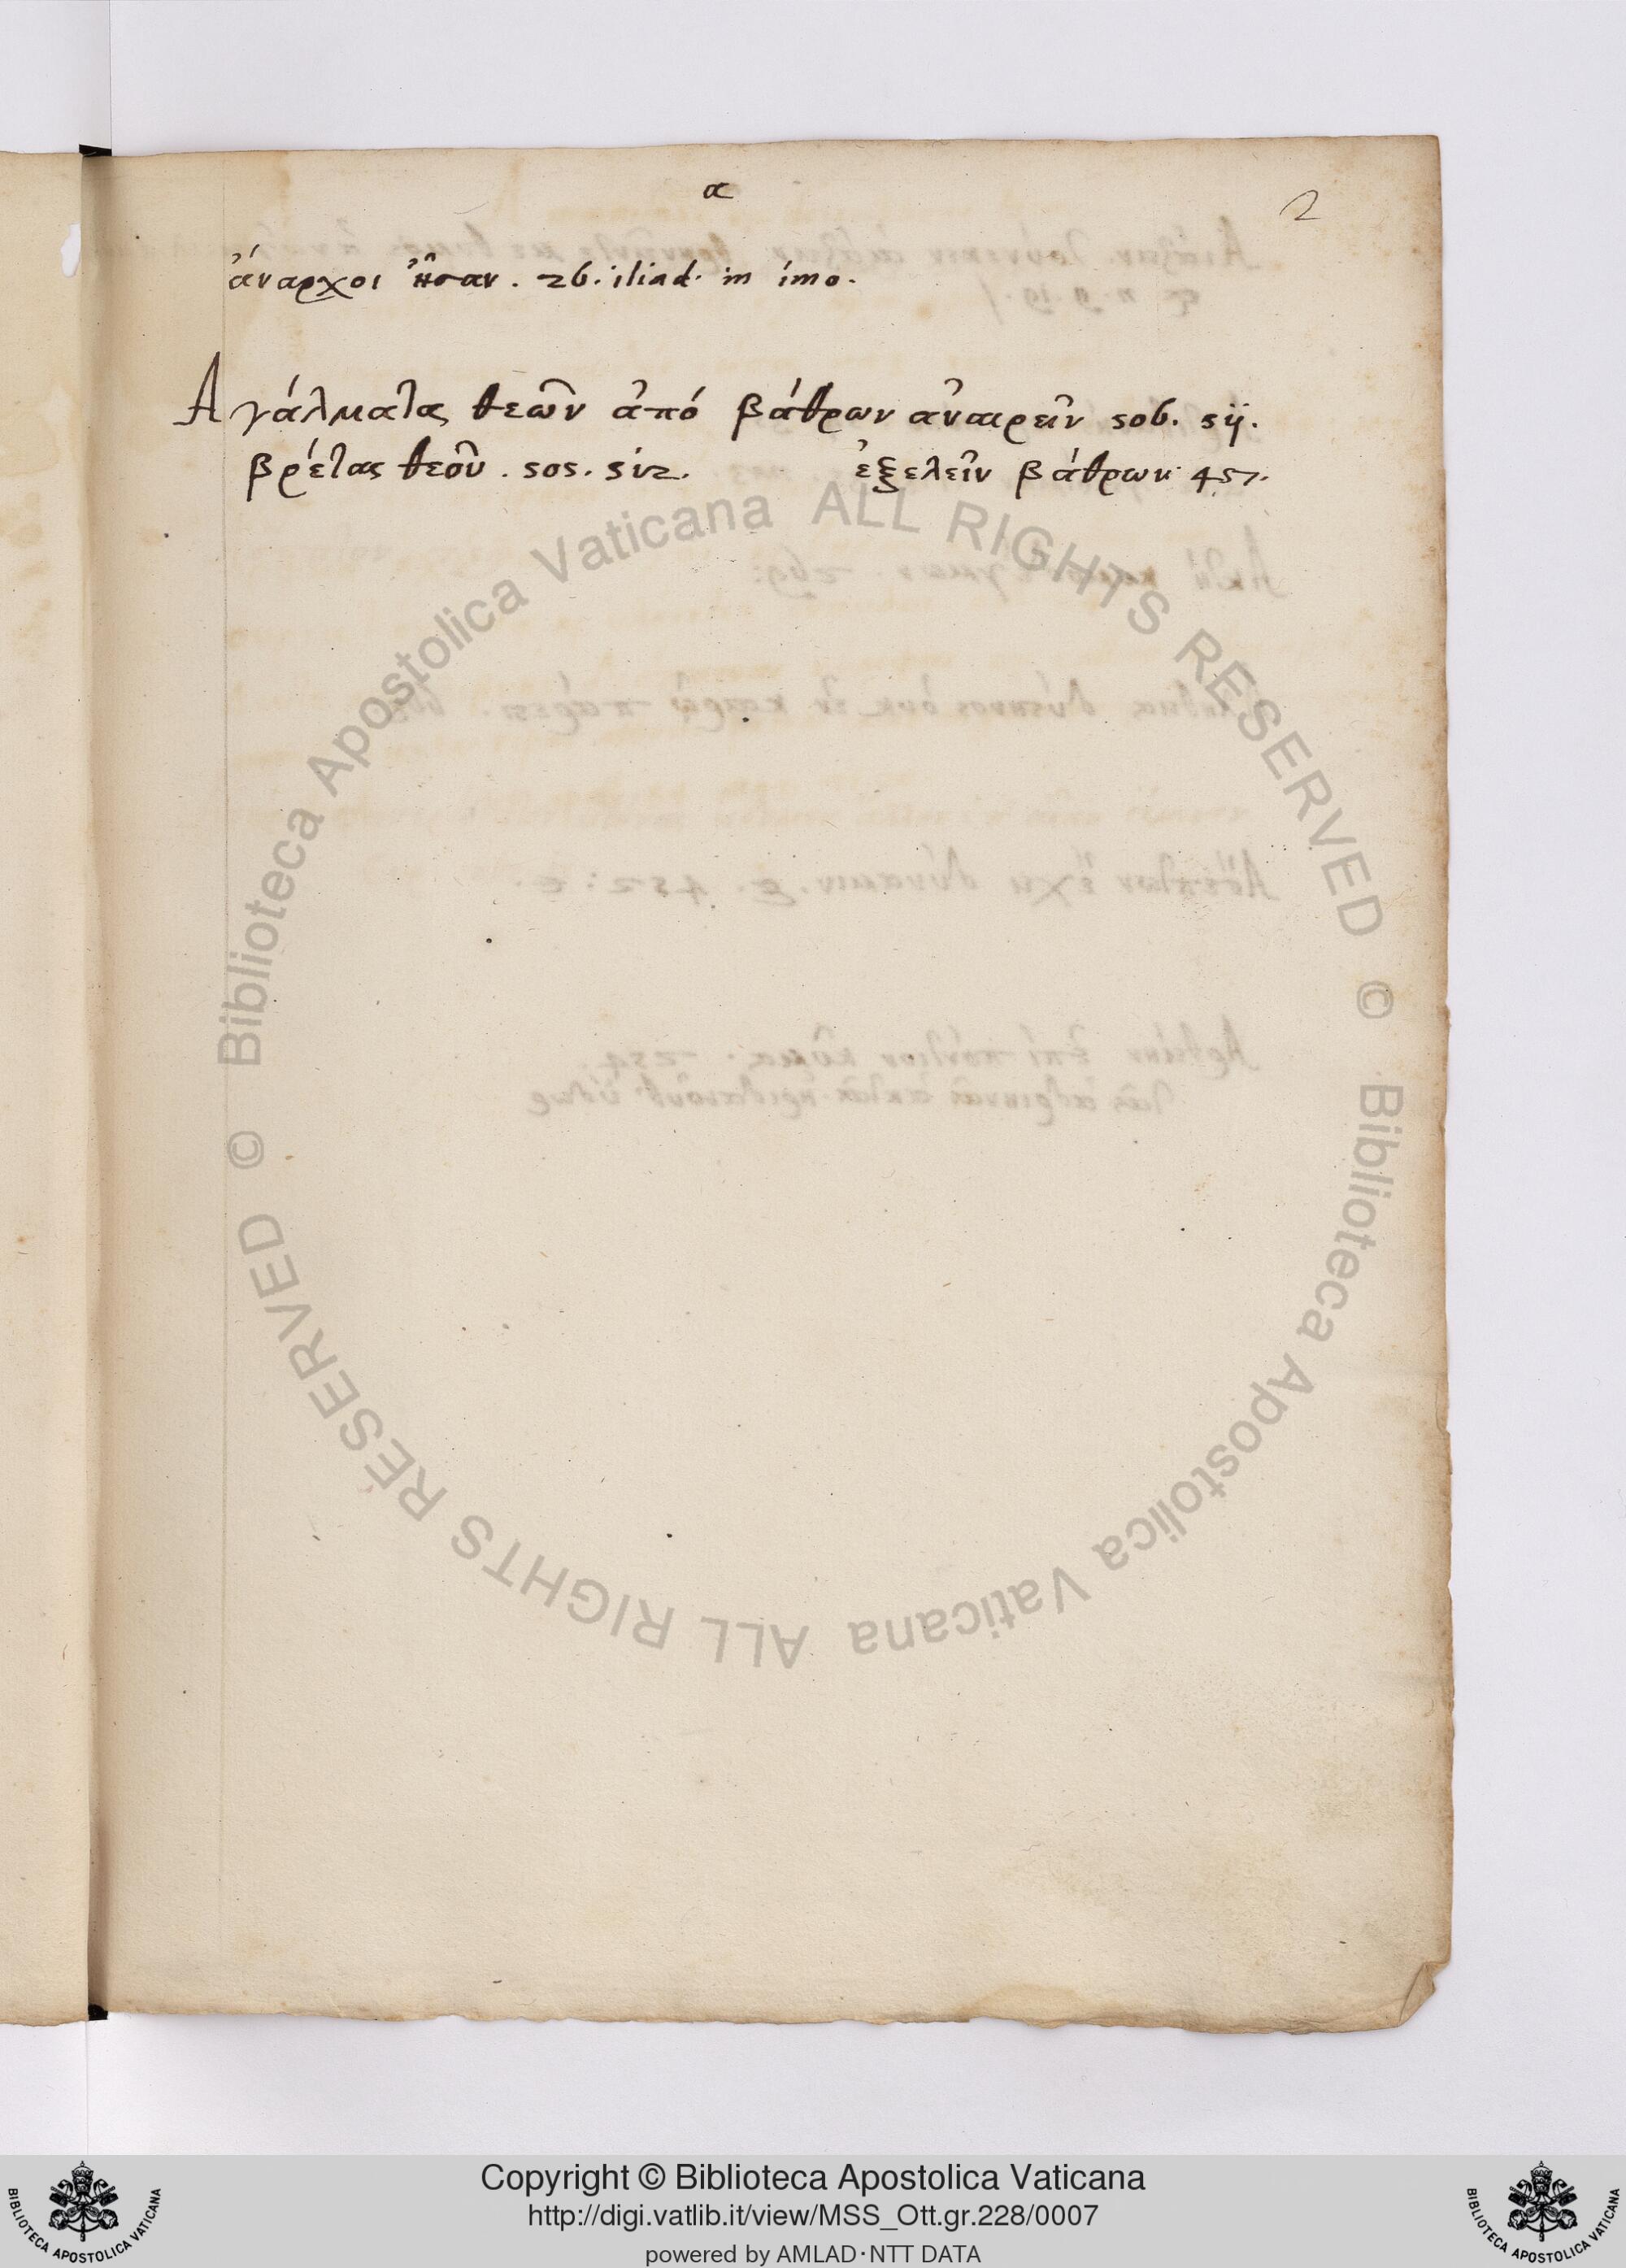 α
2
ἄναρχοι ἦσαν . 26. iliad. in imo.
Αγάλματα θεῶν ἀπό βάθρων ἀναιρεῖν 506. 5ij.
βρέτας θεοῦ . 505. 5i2. ἐξελεῖν βάθρων 457.
© Biblioteca Apostolica Vaticana ALL RIGHTS RESERVED © Biblioteca Apostolica Vaticana ALL RIGHTS RESERVED
Copyright © Biblioteca Apostolica Vaticana
http://digi.vatlib.it/view/MSS_Ott.gr.228/0007
powered by AMLAD·NTT DATA
BIBLIOTECA APOSTOLICA VATICANA
BIBLIOTECA APOSTOLICA VATICANA